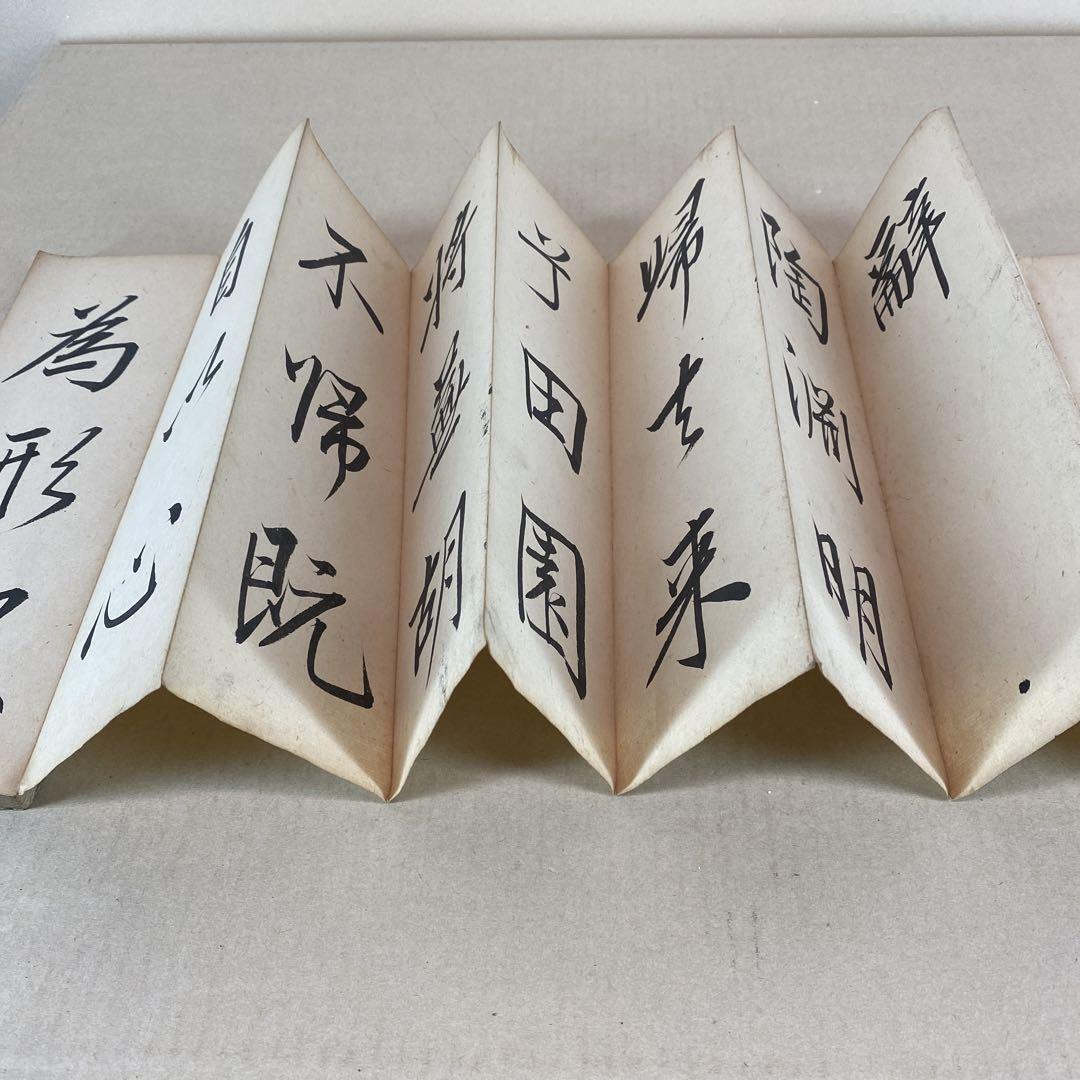 辭
陶淵明
帰去来
兮田園
將蕪胡
不帰既
自以心
為形